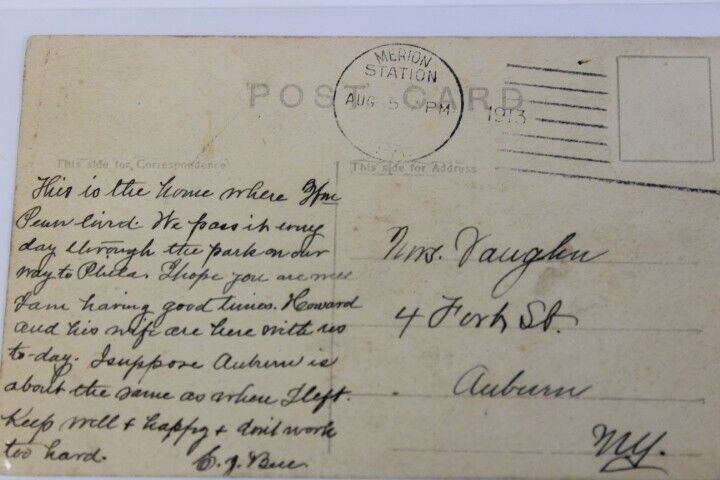 MERION
STATION
AUG 5 PM
PA.
1913
POST CARD
This side for Correspondence
This side for Address
This is the home where Wm
Penn livd. We pass it every
day through the park on our
way to Phila. I hope you are well
I am having good times. Howard
and his wife are here with us
to-day. I suppose Auburn is
about the same as when I left.
Keep well & happy & don't work
too hard.
C. J.
Mrs. Vaughn
4 Fort St.
Auburn
N.Y.